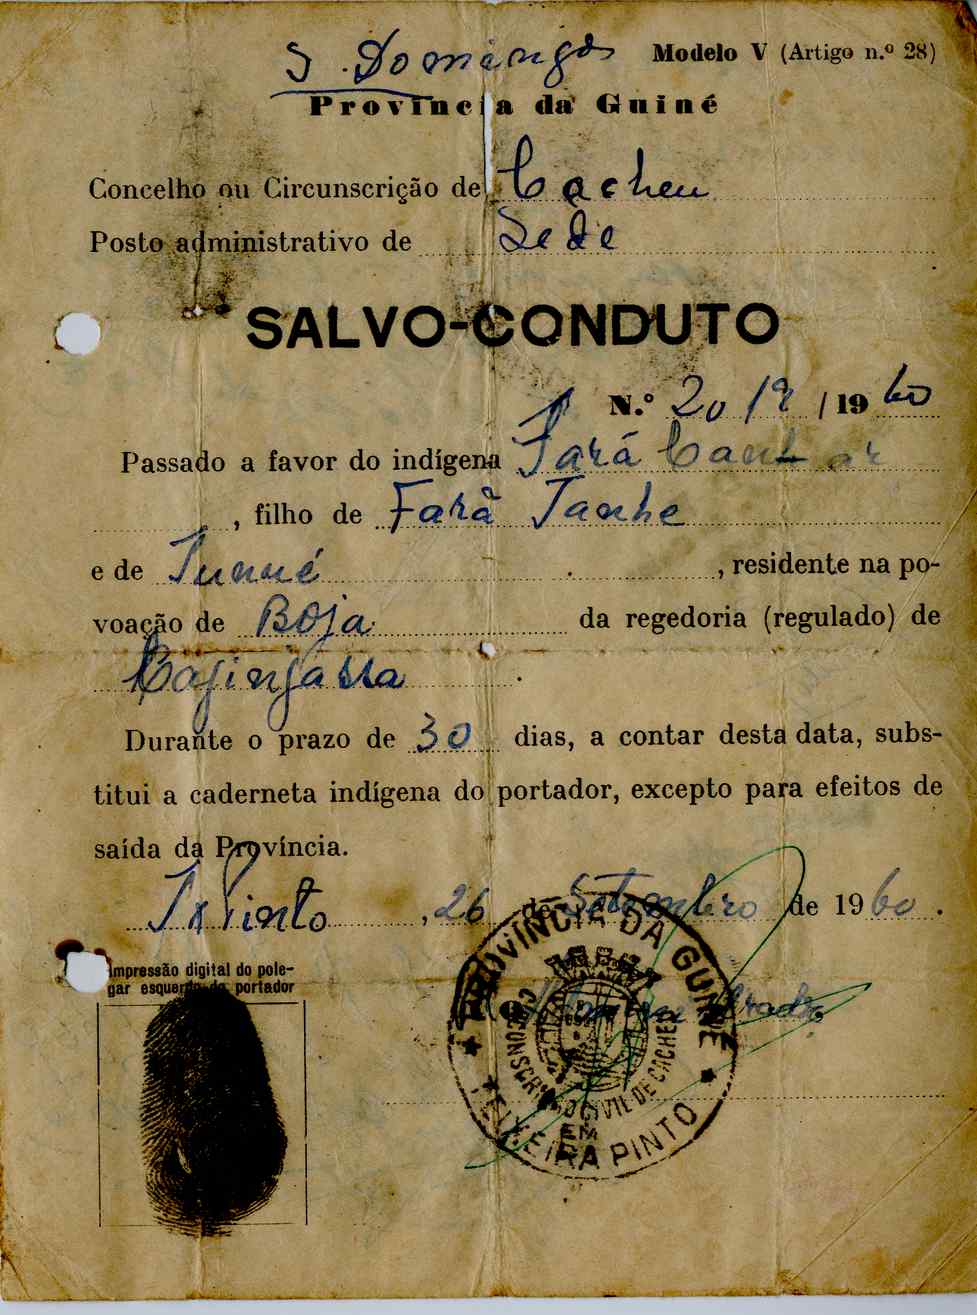 S. Domingos Modelo V (Artigo n.º 28)
Província da Guiné
Concelho ou Circunscrição de Cacheu
Posto administrativo de Sede
SALVO-CONDUTO
N.º 2019/1960
Passado a favor do indígena Fará
, filho de Fará Tanhe
e de , residente na po-
voação de Boja da regedoria (regulado) de
Durante o prazo de 30 dias, a contar desta data, subs-
titui a caderneta indígena do portador, excepto para efeitos de
saída da Província.
T. Pinto, 26 de Setembro de 1960.
Impressão digital do pole-
gar esquerdo do portador
PROVÍNCIA DA GUINÉ
CIRCUNSCRIÇÃO CIVIL DE CACHEU
EM
TEIXEIRA PINTO